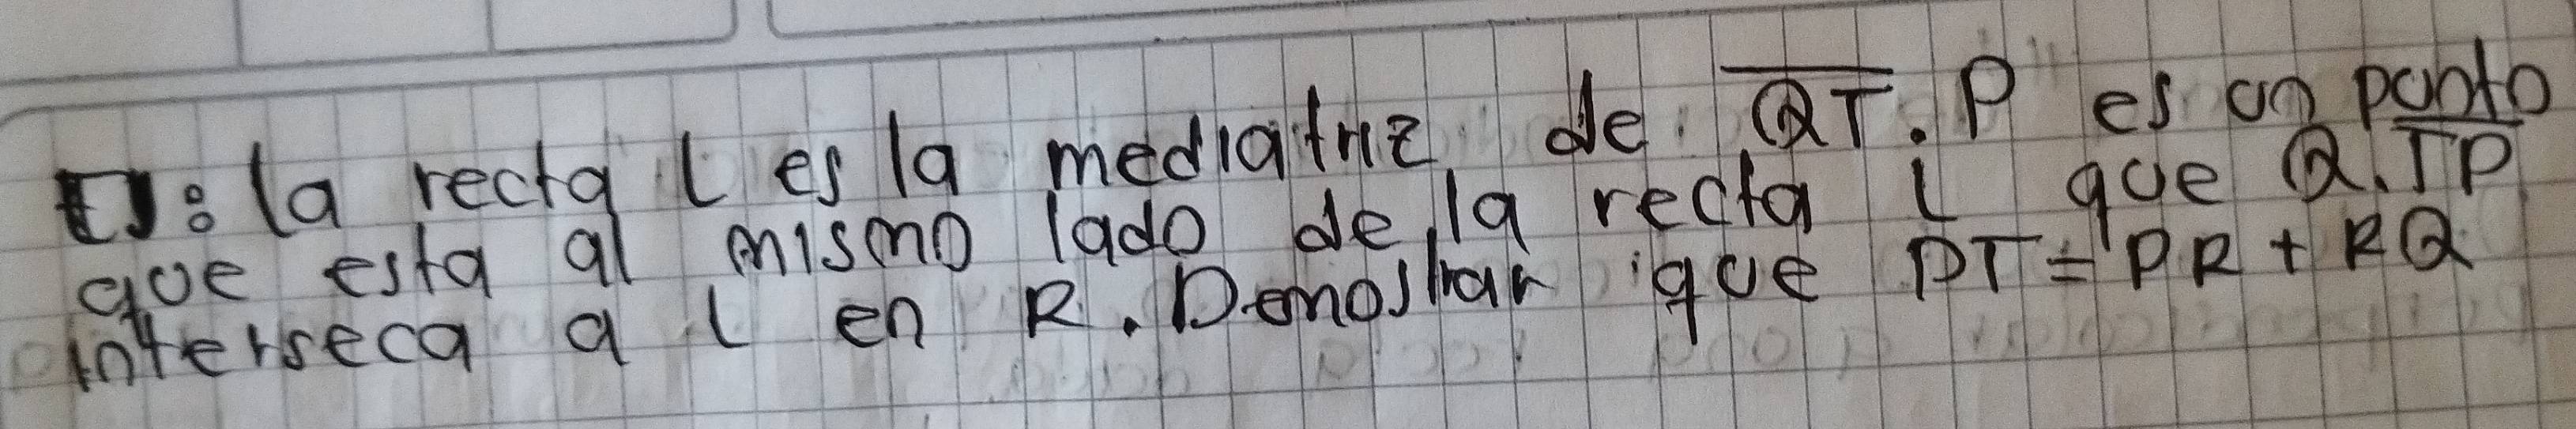 la recta l es la mediatriz de QT. P es un punto
que esta al mismo lado de la recta l que Q. TP
interseca a l en R. Demostrar que PT = PR + RQ